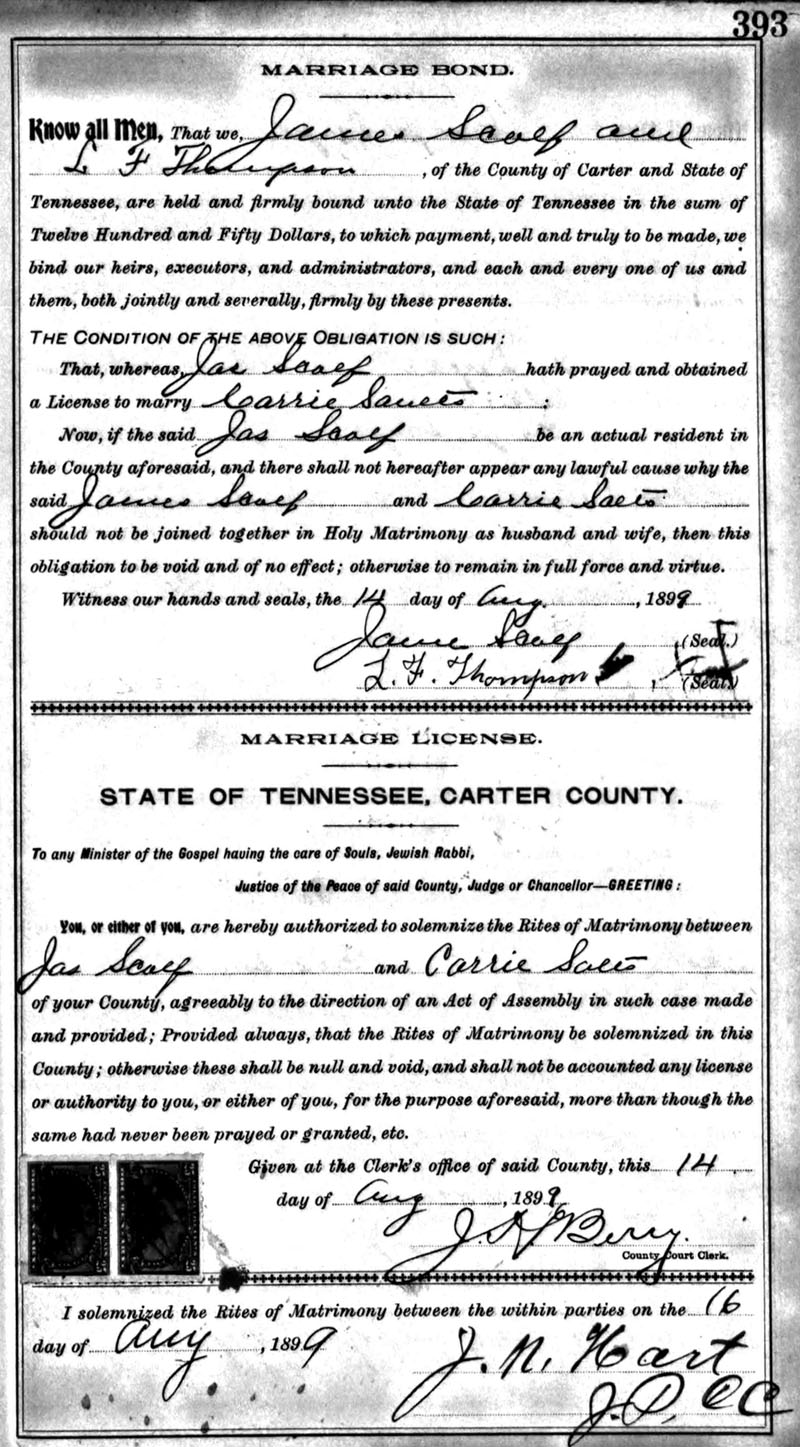 393
MARRIAGE BOND.
Know all Men, That we, James Scalf and
L F Thompson, of the County of Carter and State of
Tennessee, are held and firmly bound unto the State of Tennessee in the sum of
Twelve Hundred and Fifty Dollars, to which payment, well and truly to be made, we
bind our heirs, executors, and administrators, and each and every one of us and
them, both jointly and severally, firmly by these presents.
THE CONDITION OF THE ABOVE OBLIGATION IS SUCH:
That, whereas, Jas Scalf hath prayed and obtained
a License to marry Carrie :
Now, if the said Jas Scalf be an actual resident in
the County aforesaid, and there shall not hereafter appear any lawful cause why the
said James Scalf and Carrie
should not be joined together in Holy Matrimony as husband and wife, then this
obligation to be void and of no effect; otherwise to remain in full force and virtue.
Witness our hands and seals, the 14 day of Aug., 1899
Scalf, (Seal.)
L. F. Thompson, (Seal.)
MARRIAGE LICENSE.
STATE OF TENNESSEE, CARTER COUNTY.
To any Minister of the Gospel having the care of Souls, Jewish Rabbi,
Justice of the Peace of said County, Judge or Chancellor—GREETING:
You, or either of you, are hereby authorized to solemnize the Rites of Matrimony between
Jas Scalf and Carrie
of your County, agreeably to the direction of an Act of Assembly in such case made
and provided; Provided always, that the Rites of Matrimony be solemnized in this
County; otherwise these shall be null and void, and shall not be accounted any license
or authority to you, or either of you, for the purpose aforesaid, more than though the
same had never been prayed or granted, etc.
Given at the Clerk's office of said County, this 14
day of Aug, 1899
Berry.
County Court Clerk.
I solemnized the Rites of Matrimony between the within parties on the 16
day of Aug, 1899
J. N. Hart
J. P. CC